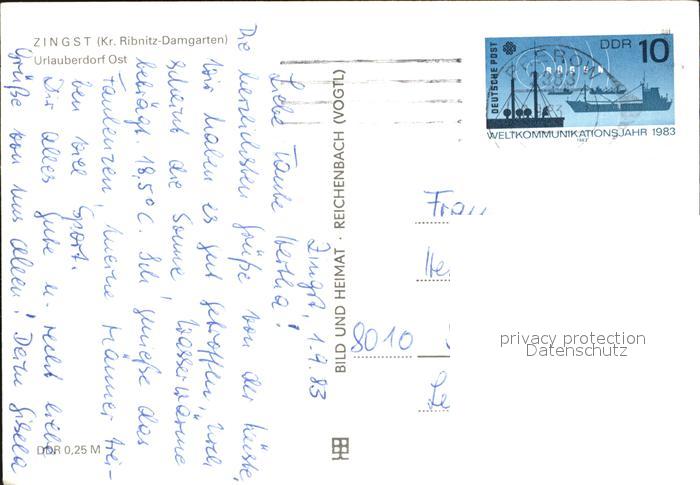 ZINGST (Kr. Ribnitz-Damgarten)
Urlauberdorf Ost
Zingst, 1.9.83
Liebe Tante Hertha!
Die herzlichsten Grüße von der Küste,
wir haben es gut getroffen, noch
scheint die Sonne, Wasserwärme
beträgt 18,5°C. Ich genieße das
Faulenzen, meine Männer trei-
ben viel Sport.
Dir alles Gute u. recht liebe
Grüße von uns allen! Deine Gisela
DDR 0,25 M
BILD UND HEIMAT · REICHENBACH (VOGTL)
DEUTSCHE POST
DDR 10
RÜGEN
WELTKOMMUNIKATIONSJAHR 1983
Frau
8010
privacy protection
Datenschutz